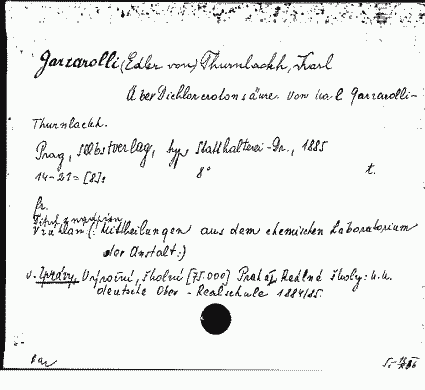 Garzarolli (Edler von) Thurnlackh, Karl
Über Dichlorcrotonsäure. Von Karl Garzarolli-
Thurnlackh.
Prag, Selbstverlag, typ. Statthalterei-Dr., 1885
14-21 = [8] s.
8° t.
fr.
Titul z napřian
V záhlaví (: Mittheilungen aus dem chemischen Laboratorium
der Anstalt :)
v. Zprávy, Výroční, školní [75.000] Praha, Reálné školy: k.k.
deutsche Ober-Realschule 1884/85.